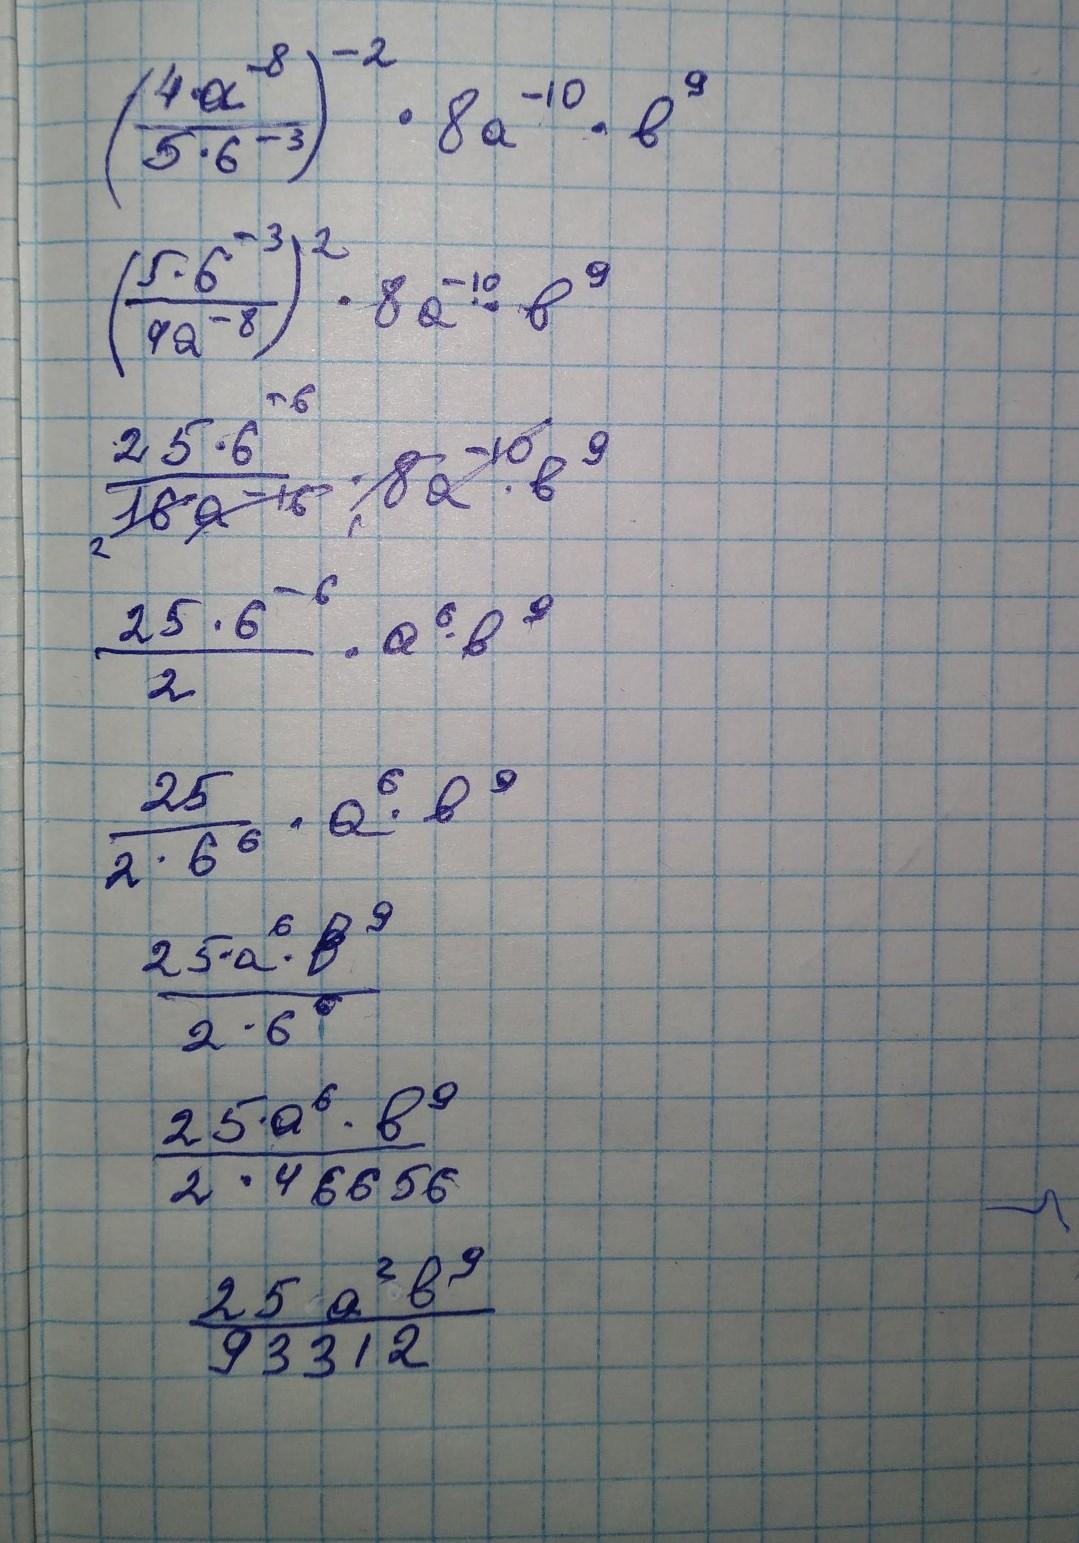 (4·a^-8 / 5·6^-3)^-2 · 8a^-10 · в^9
(5·6^-3 / 4a^-8)^2 · 8a^-10 · в^9
25·6^-6 / 16a^-16 · 8a^-10 · в^9
2 1
25·6^-6 / 2 · a^6 · в^9
25 / 2·6^6 · a^6 · в^9
25·a^6·в^9 / 2·6^6
25·a^6·в^9 / 2·46656
25 a^2 в^9 / 93312